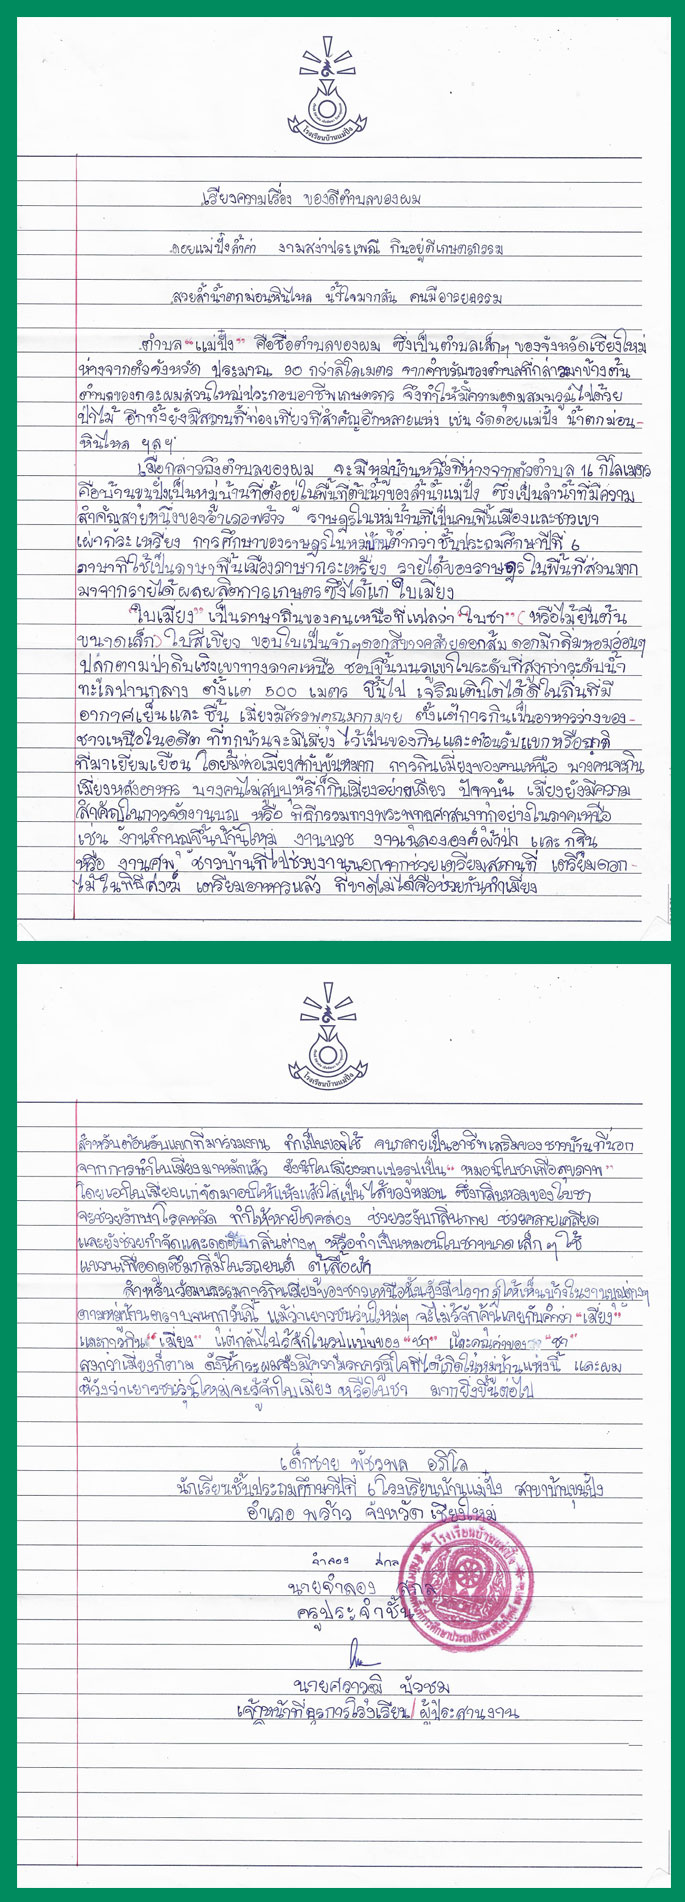 โรงเรียนบ้านแม่ปั๋ง
เรียงความเรื่อง ของดีตำบลของผม
ดอยแม่ปั๋งล้ำค่า งามสง่าประเพณี กินอยู่ดีเกษตรกรรม
สวยล้ำน้ำตกม่อนหินไหล น้ำใจมากล้น คนมีอารยธรรม
ตำบล "แม่ปั๋ง" คือชื่อตำบลของผม ซึ่งเป็นตำบลเล็กๆ ของจังหวัดเชียงใหม่
ห่างจากตัวจังหวัด ประมาณ 90 กว่ากิโลเมตร จากคำขวัญของตำบลที่กล่าวมาข้างต้น
ตำบลของกระผมส่วนใหญ่ประกอบอาชีพเกษตรกร จึงทำให้มีความอุดมสมบรูณ์ไปด้วย
ป่าไม้ อีกทั้งยังมีสถานที่ท่องเที่ยวที่สำคัญอีกหลายแห่ง เช่น วัดดอยแม่ปั๋ง น้ำตกม่อน-
หินไหล ฯลฯ
เมื่อกล่าวถึงตำบลของผม จะมีหมู่บ้านหนึ่งที่ห่างจากตัวตำบล 16 กิโลเมตร
คือบ้านขุนปั๋งเป็นหมู่บ้านที่ตั้งอยู่ในพื้นที่ต้นน้ำของลำน้ำแม่ปั๋ง ซึ่งเป็นลำน้ำที่มีความ
สำคัญสายหนึ่งของอำเภอพร้าว ราษฎรในหมู่บ้านที่เป็นคนพื้นเมืองและชาวเขา
เผ่ากระเหรี่ยง การศึกษาของราษฎรในหมู่บ้านต่ำกว่าชั้นประถมศึกษาปีที่ 6
ภาษาที่ใช้เป็นภาษาพื้นเมืองภาษากระเหรี่ยง รายได้ของราษฎรในพื้นที่ส่วนมาก
มาจากรายได้ผลผลิตการเกษตรซึ่งได้แก่ ใบเมี่ยง
"ใบเมี่ยง" เป็นภาษาถิ่นของคนเหนือที่แปลว่า "ใบชา" (หรือไม้ยืนต้น
ขนาดเล็ก) ใบสีเขียว ขอบใบเป็นจักๆดอกสีขาวคล้ายดอกส้ม ดอกมีกลิ่นหอมอ่อนๆ
ปลูกตามป่าดิบเชิงเขาทางภาคเหนือ ชอบขึ้นบนภูเขาในระดับที่สูงกว่าระดับน้ำ
ทะเลปานกลาง ตั้งแต่ 500 เมตร ขึ้นไป เจริญเติบโตได้ดีในถิ่นที่มี
อากาศเย็นและชื้น เมี่ยงมีสรรพคุณมากมาย ตั้งแต่การกินเป็นอาหารว่างของ-
ชาวเหนือในอดีต ที่ทุกบ้านจะมีเมี่ยง ไว้เป็นของกินและต้อนรับแขกหรือญาติ
ที่มาเยี่ยมเยือน โดยมีห่อเมี่ยงคู่กับขันหมาก การกินเมี่ยงของคนเหนือ บางคนจะกิน
เมี่ยงหลังอาหาร บางคนไม่สูบบุหรี่ก็กินเมี่ยงอย่างเดียว ปัจจุบัน เมี่ยงยังมีความ
สำคัญในการจัดงานบุญ หรือ พิธีกรรมทางพระพุทธศาสนาทุกอย่างในภาคเหนือ
เช่น งานทำบุญขึ้นบ้านใหม่ งานบวช งานฉลององค์ผ้าป่า และกฐิน
หรือ งานศพ ชาวบ้านที่ไปช่วยงานนอกจากช่วยเตรียมสถานที่ เตรียมดอก-
ไม้ในพิธีสงฆ์ เตรียมอาหารแล้ว ที่ขาดไม่ได้คือช่วยกันทำเมี่ยง
โรงเรียนบ้านแม่ปั๋ง
สำหรับต้อนรับแขกที่มาร่วมงาน ทำเป็นของใช้ จนกลายเป็นอาชีพเสริมของชาวบ้านที่นอก
จากการนำใบเมี่ยงมาหมักแล้ว ยังนำใบเมี่ยงมาแปรรูปเป็น "หมอนใบชาเพื่อสุขภาพ"
โดยเอาใบเมี่ยงแก่จัดมาอบให้แห้งแล้วใส่เป็นไส้ของหมอน ซึ่งกลิ่นหอมของใบชา
จะช่วยรักษาโรคหวัด ทำให้หายใจคล่อง ช่วยระงับกลิ่นกาย ช่วยคลายเครียด
และยังช่วยกำจัดและดูดซับกลิ่นต่างๆ หรือทำเป็นหมอนใบชาขนาดเล็กๆ ใช้
แขวนเพื่อดูดซึมกลิ่นในรถยนต์ ตู้เสื้อผ้า
สำหรับวัฒนธรรมการกินเมี่ยงของชาวเหนือนั้นยังมีปรากฏให้เห็นบ้างในงานบุญต่างๆ
ตามหมู่บ้านตราบจนทุกวันนี้ แม้ว่าเยาวชนรุ่นใหม่ๆ จะไม่รู้จักคุ้นเคยกับคำว่า "เมี่ยง"
และการกิน "เมี่ยง" แต่กลับไปรู้จักในรูปแบบของ "ชา" และคุณค่าของ "ชา"
สูงกว่าเมี่ยงก็ตาม ดังนี้กระผมจึงมีความภาคภูมิใจที่ได้เกิดในหมู่บ้านแห่งนี้ และผม
หวังว่าเยาวชนรุ่นใหม่จะรู้จักใบเมี่ยง หรือใบชา มากยิ่งขึ้นต่อไป
เด็กชาย พัชรพล อภิโล
นักเรียนชั้นประถมศึกษาปีที่ 6 โรงเรียนบ้านแม่ปั๋ง สาขาบ้านขุนปั๋ง
อำเภอ พร้าว จังหวัด เชียงใหม่
จำลอง สุกล
นายจำลอง สุกล
ครูประจำชั้น
โรงเรียนบ้านแม่ปั๋ง
นายศราวุฒิ บัวชม
เจ้าหน้าที่ธุรการโรงเรียน/ผู้ประสานงาน